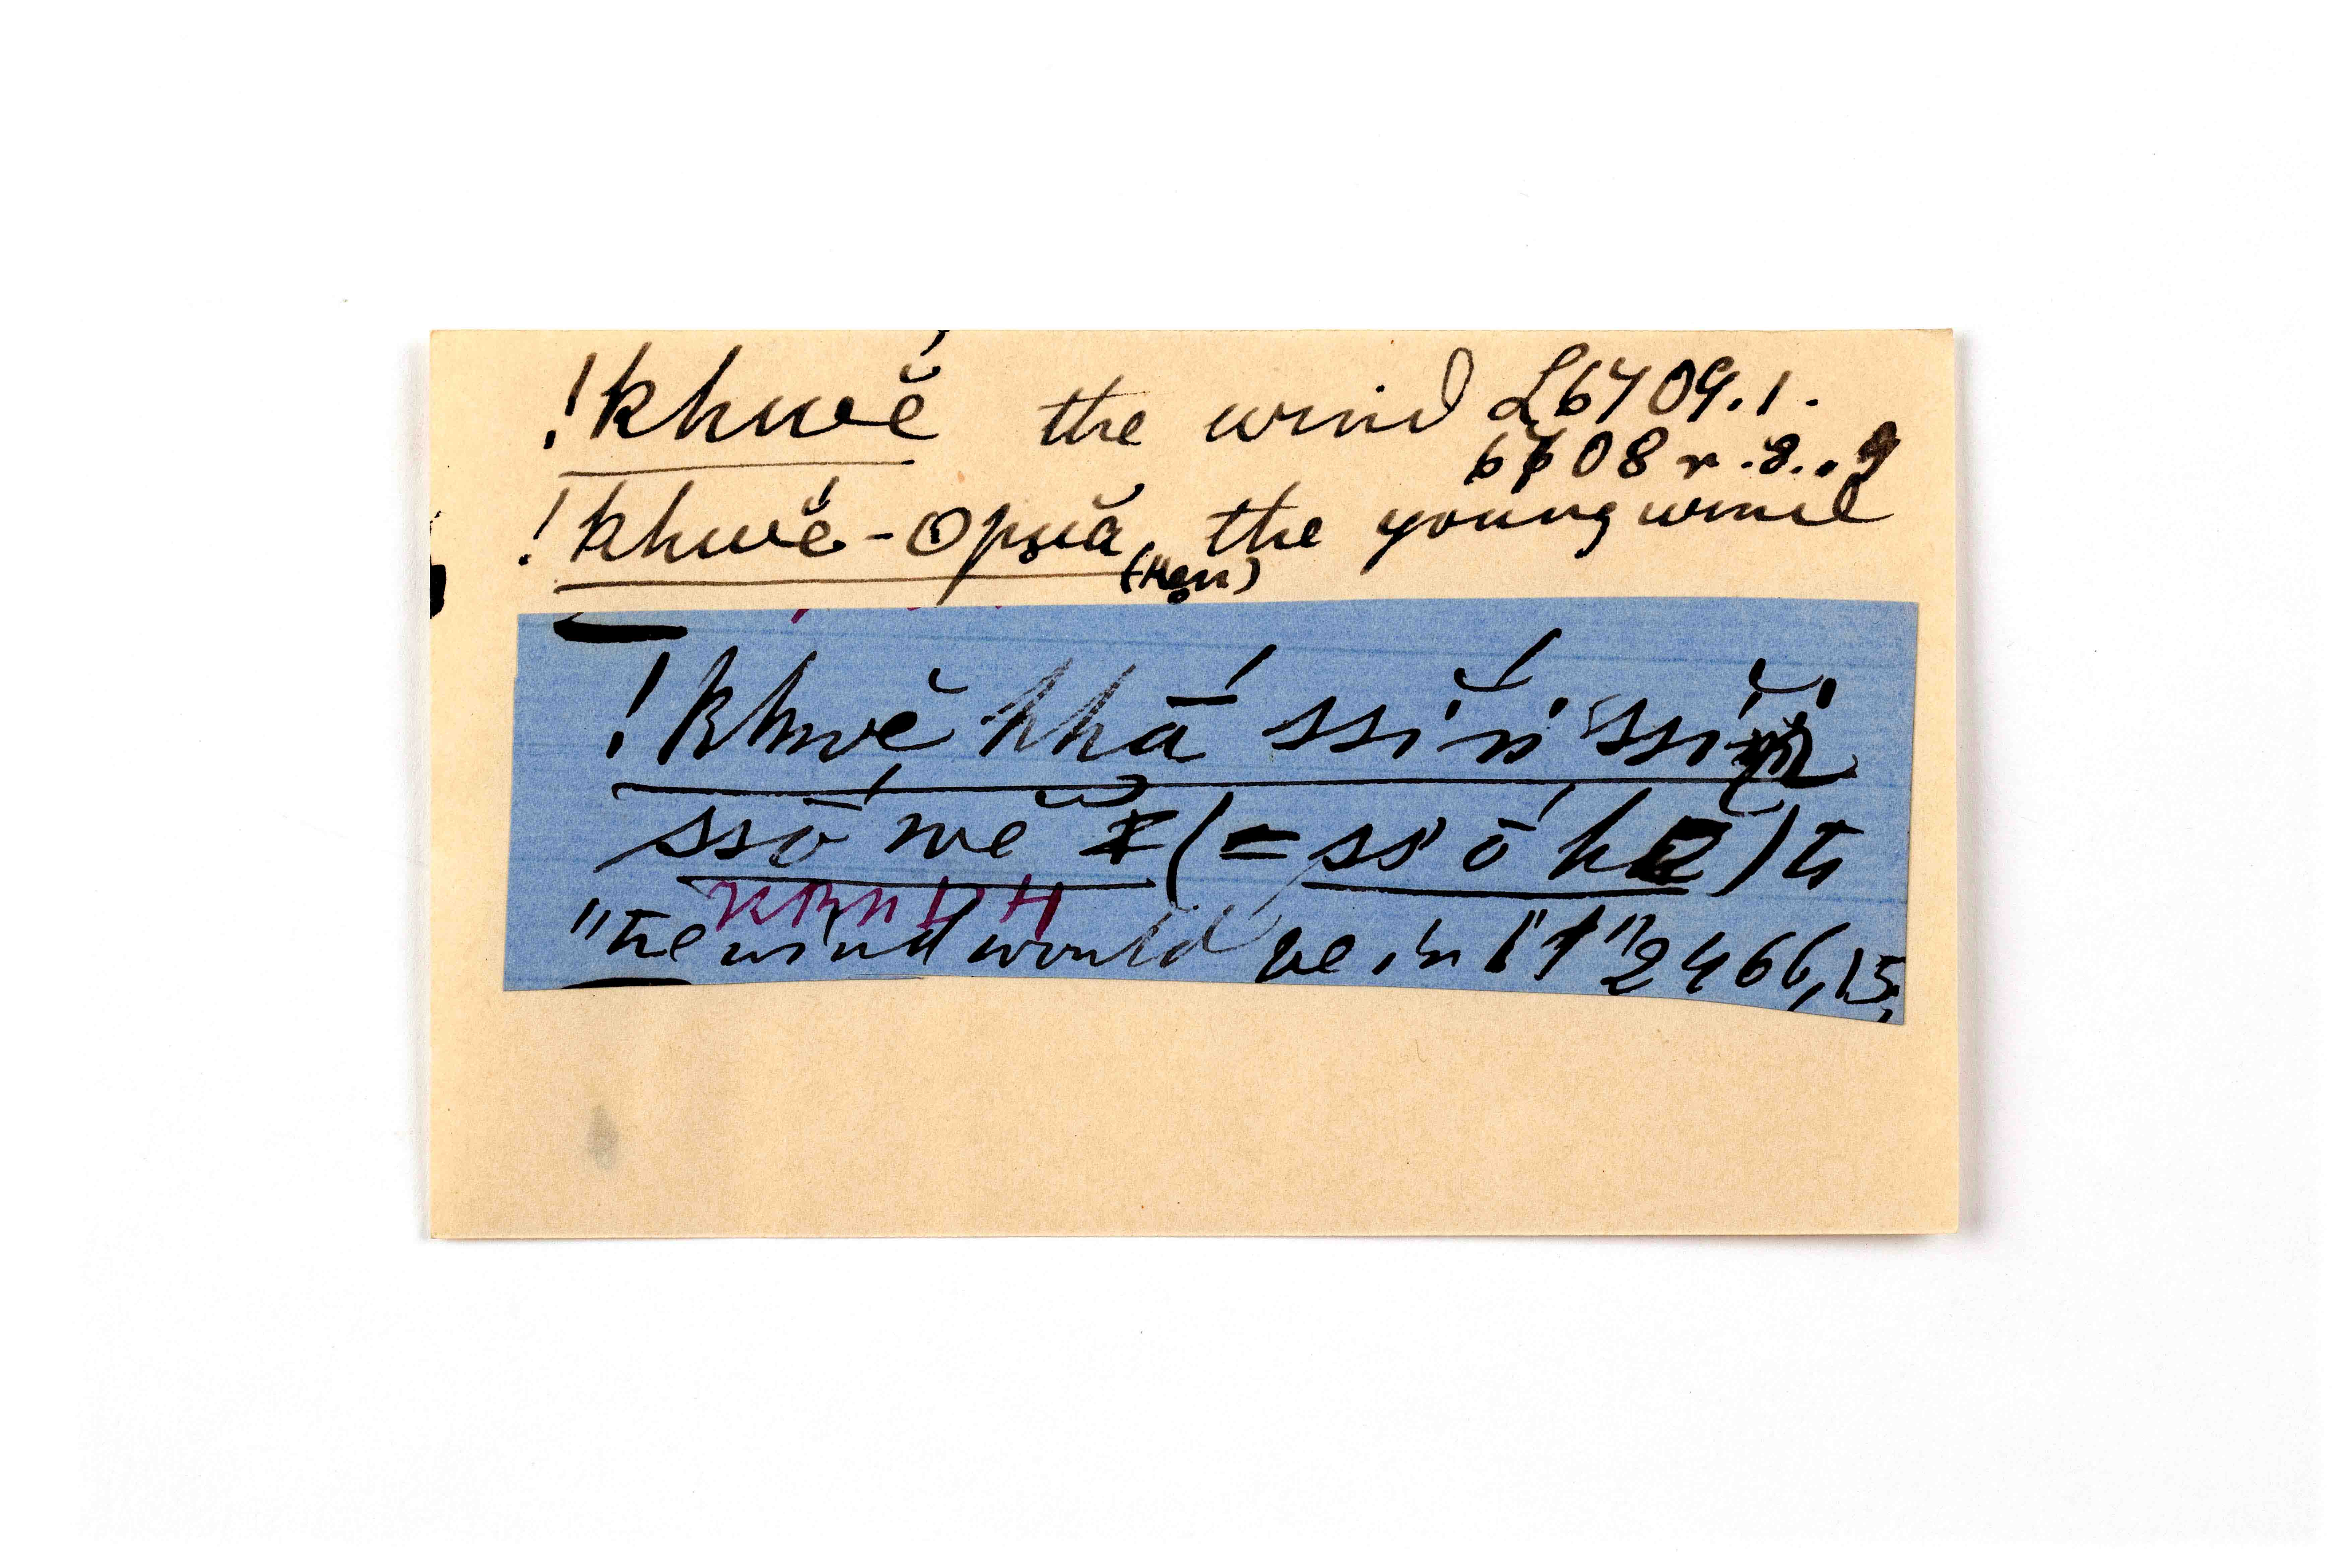 !khwĕ́ the wind L6709.1.
6608 r.8..9
!khwĕ́-Opuắ, the young wind
(Hen)
!khwĕ hhā́ ssĭ́n ssĭ́
ssṓ wĕ (= ss ṓ hĕ) tı
"the wind would be in it" 2466,15,